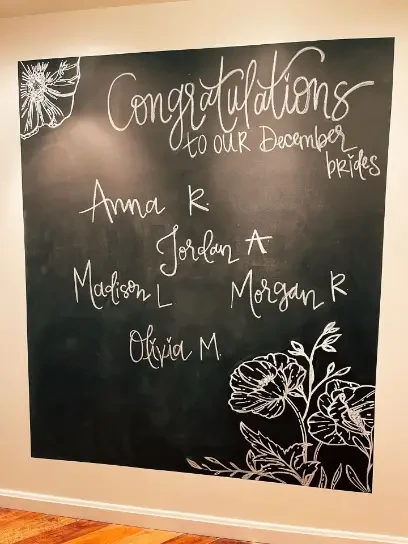 Congratulations
to our December
brides
Anna R
Jordan A
Madison L
Morgan R
Olivia M.